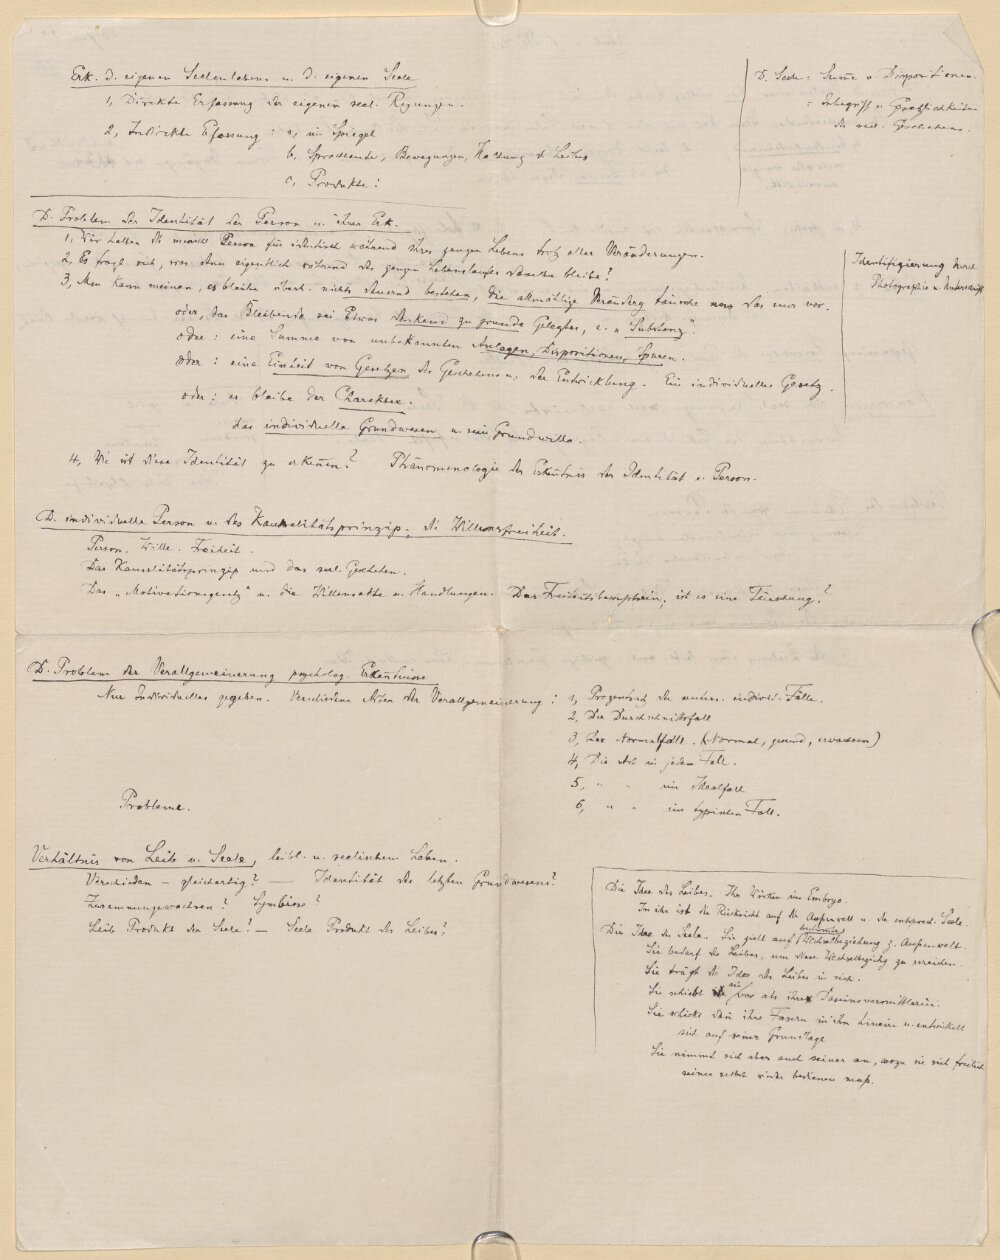 Erk. d. eigenen Seelenlebens u. d. eigenen Seele
1, Direkte Erfassung der eigenen seel. Regungen.
2, Indirekte Erfassung: a, im Spiegel
b, Sprachlaute, Bewegungen, Haltung d. Leibes
c, Produkte:
D. Seele = Summe v. Dispositionen.
= Inbegriff v. Gesetzlichkeiten
des seel. Geschehens.
D. Problem der Identität der Person u. ihrer Erk.
1, Wir halten die menschl. Person für identisch während ihres ganzen Lebens trotz aller Veränderungen.
2, Es fragt sich, was denn eigentlich während des ganzen Lebenslaufes dasselbe bleibe?
3, Man kann meinen, es bleibe überh. nichts dauernd bestehen, die allmählige Veränderg täusche uns das nur vor.
oder, das Bleibende sei Etwas denkend zu grunde Gelegtes, e. „Substanz".
oder: eine Summe von unbekannten Anlagen, Dispositionen, Spuren.
oder: eine Einheit von Gesetzen des Geschehens u. der Entwicklung. Ein individuelles Gesetz.
oder: es bleibe der Charakter.
das individuelle Grundwesen u. sein Grundwille.
4, Wie ist diese Identität zu erkennen? Phänomenologie der Erkenntnis der Identität e. Person.
Identifizierung durch
Photographie u. Unterschrift
D. individuelle Person u. das Kausalitätsprinzip; die Willensfreiheit.
Person. Wille. Freiheit.
Das Kausalitätsprinzip und das seel. Geschehen.
Das „Motivationsgesetz" u. die Willensakte u. Handlungen. Das Freiheitsbewußtsein, ist es eine Täuschung?
D. Problem der Verallgemeinerung psycholog. Erkenntnisse
Nur Individuelles gegeben. Verschiedene Arten der Verallgemeinerung:
1, Prozentsatz der unters. individ. Fälle.
2, Der Durchschnittsfall
3, Der Normalfall. (Normal, gesund, erwachsen)
4, Die Art in jedem Fall.
5, " " im Idealfall
6, " " im typischen Fall.
Probleme.
Verhältnis von Leib u. Seele, leibl. u. seelischem Leben.
Verschieden – gleichartig? — Identität des letzten Grundwesens?
Zusammengewachsen? Symbiose?
Leib Produkt der Seele? — Seele Produkt des Leibes?
Die Idee des Leibes. Ihr Wirken im Embryo.
In ihr ist die Rücksicht auf die Außenwelt u. die entsprech. Seele.
Die Idee der Seele. Sie zielt auf bestimmte Wechselbeziehung z. Außenwelt.
Sie bedarf des Leibes, um diese Wechselbeziehg zu erreichen.
Sie trägt die Idee des Leibes in sich.
Sie schiebt sie vor als ihre Daseinsvermittlerin.
Sie schickt dann ihre Fasern in ihn hinein u. entwickelt
sich auf seiner Grundlage
Sie nimmt sich aber auch seiner an, wozu sie sich freilich
seiner selbst wieder bedienen muß.